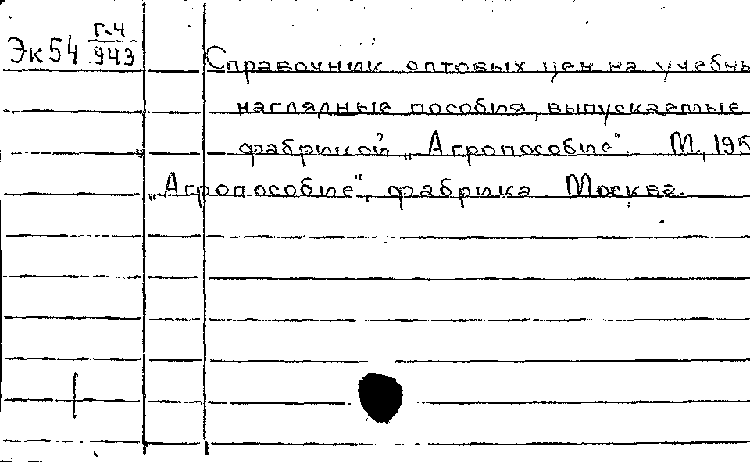 Эк54 Г-4/943
Справочник оптовых цен на учебн
наглядные пособия, выпускаемые
фабрикой „Агропособие". М, 195
„Агропособие", фабрика Москва.